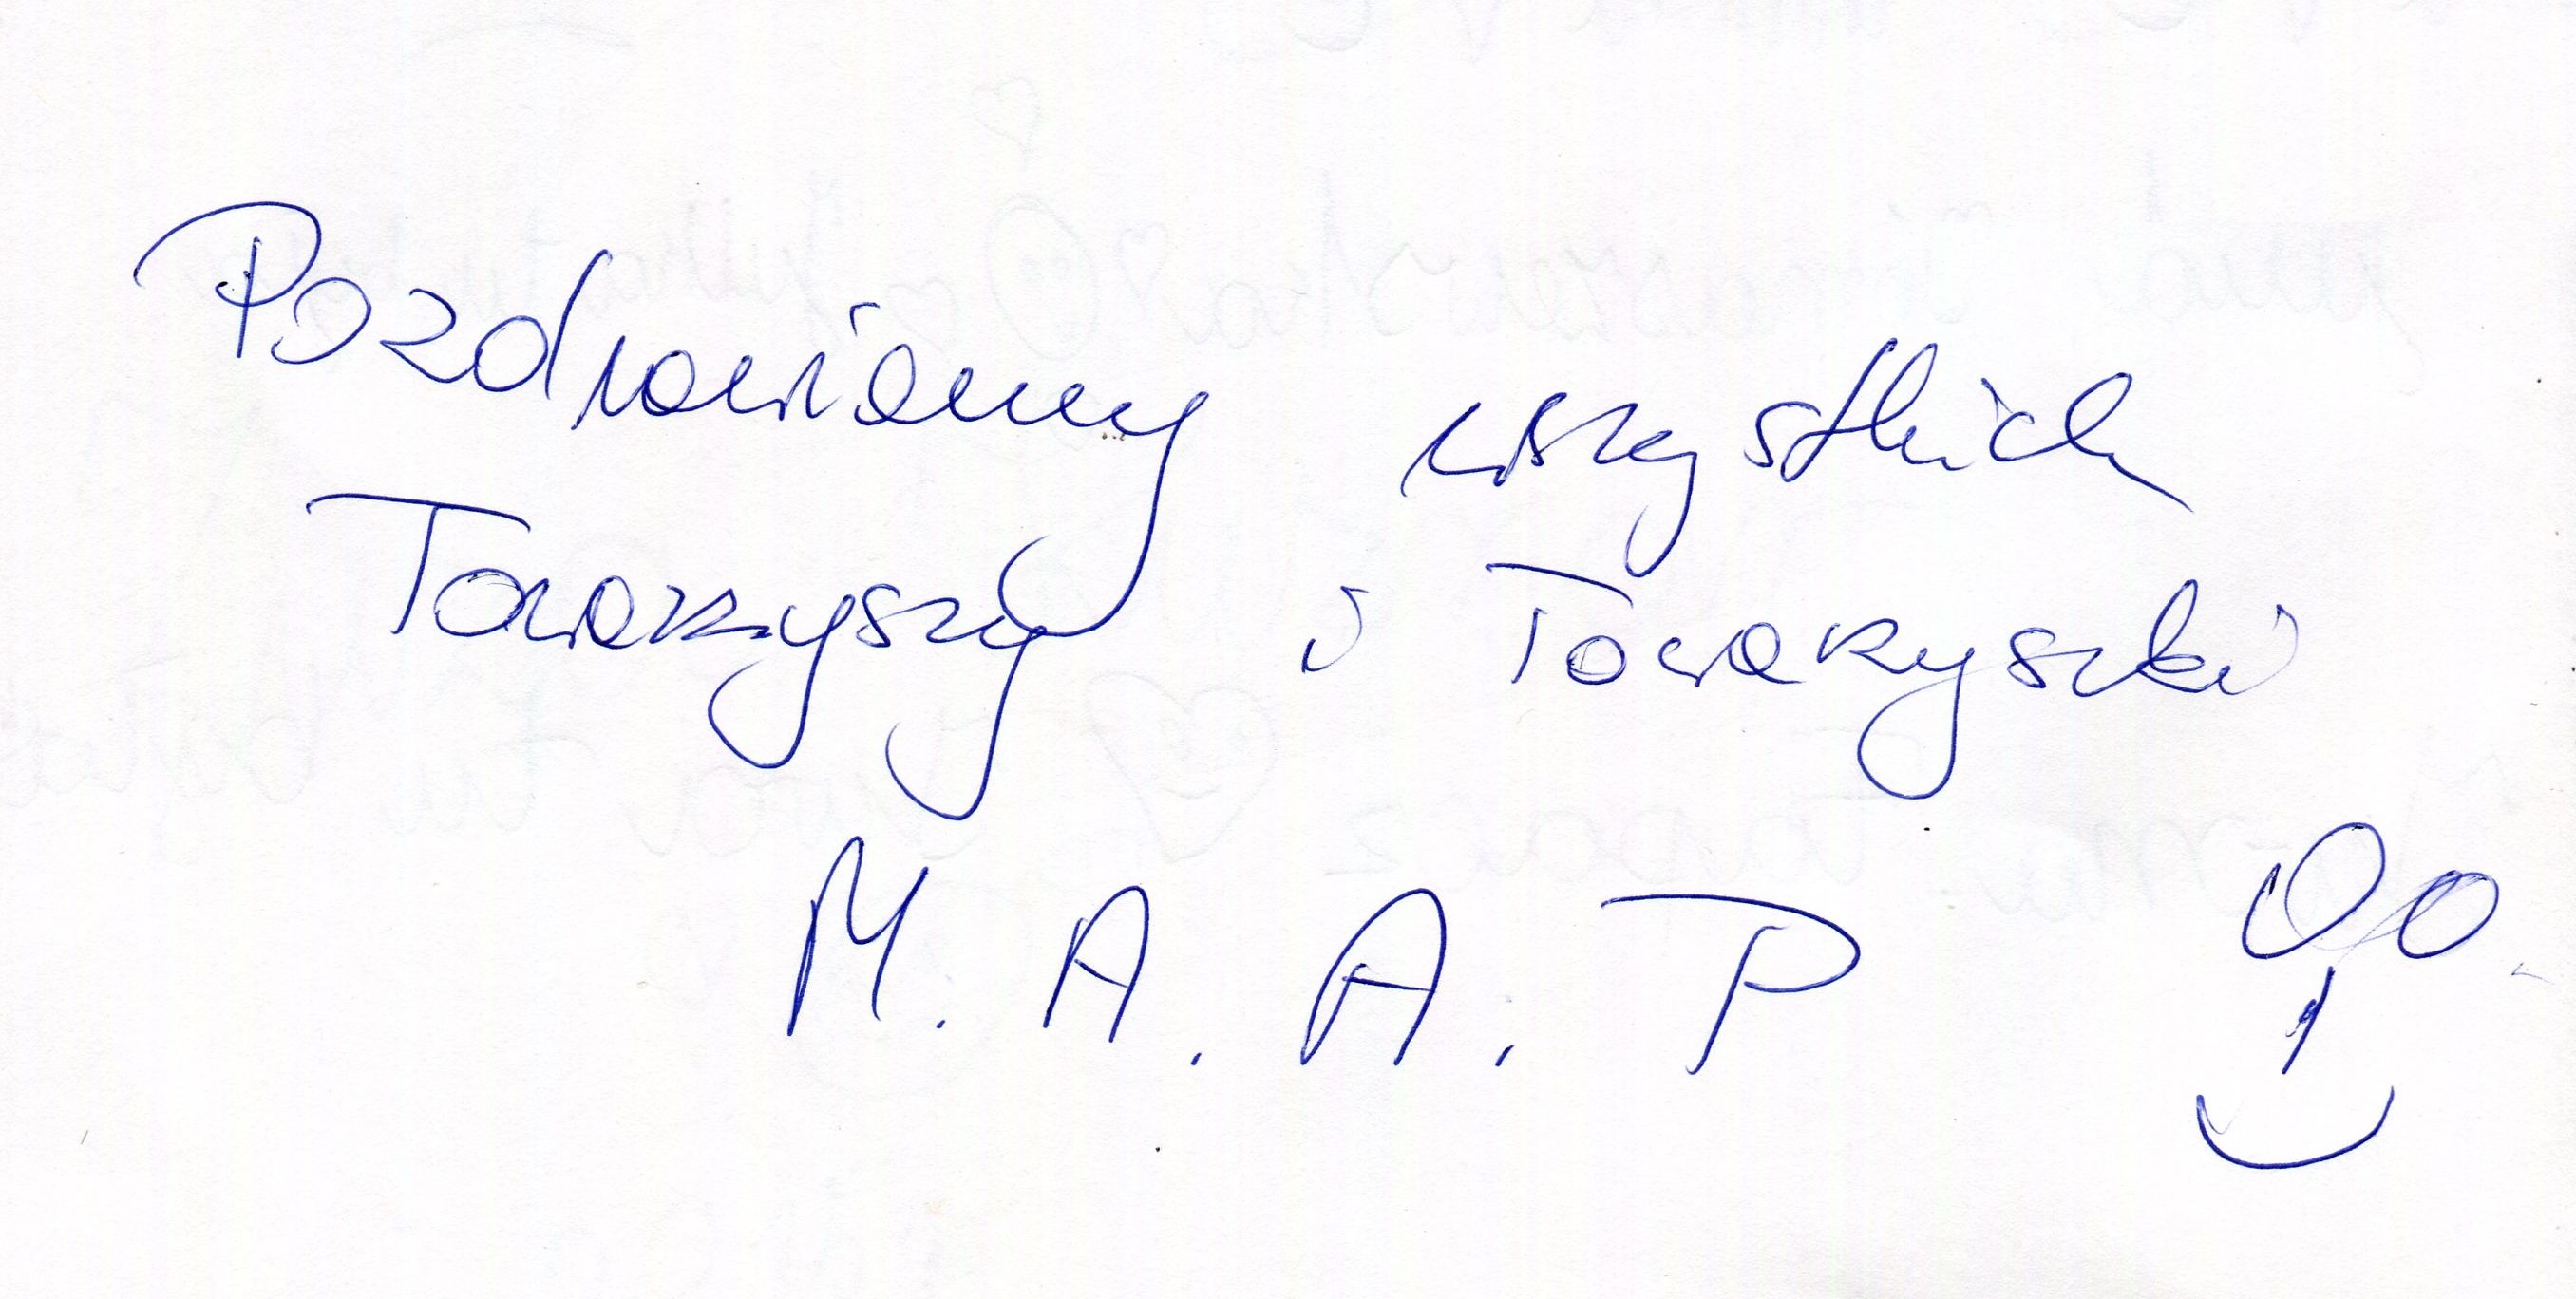 Pozdrawiamy wszystkich
Towarzyszy i Towarzyszki
M. A. A. P